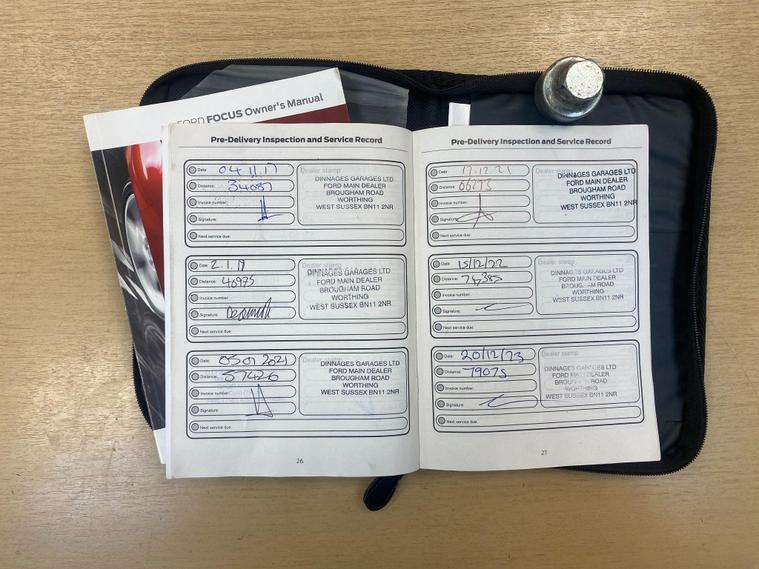 FORD FOCUS Owner's Manual
Pre-Delivery Inspection and Service Record
Date: 04.11.17
Distance: 34037
Invoice number:
Signature:
Next service due:
Dealer stamp
DINNAGES GARAGES LTD
FORD MAIN DEALER
BROUGHAM ROAD
WORTHING
WEST SUSSEX BN11 2NR
Date: 2.1.19
Distance: 40975
Invoice number:
Signature:
Next service due:
Dealer stamp
DINNAGES GARAGES LTD
FORD MAIN DEALER
BROUGHAM ROAD
WORTHING
WEST SUSSEX BN11 2NR
Date: 05 01 2021
Distance: 57426
Invoice number:
Signature:
Next service due:
Dealer stamp
DINNAGES GARAGES LTD
FORD MAIN DEALER
BROUGHAM ROAD
WORTHING
WEST SUSSEX BN11 2NR
26
Pre-Delivery Inspection and Service Record
Date: 17.12.21
Distance: 66273
Invoice number:
Signature:
Next service due:
DINNAGES GARAGES LTD
FORD MAIN DEALER
BROUGHAM ROAD
WORTHING
WEST SUSSEX BN11 2NR
Date: 15/12/22
Distance: 74,385
Invoice number:
Signature:
Next service due:
Dealer stamp
DINNAGES GARAGES LTD
FORD MAIN DEALER
BROUGHAM ROAD
WORTHING
WEST SUSSEX BN11 2NR
Date: 20/12/23
Distance: 79075
Invoice number:
Signature:
Next service due:
Dealer stamp
DINNAGES GARAGES LTD
FORD MAIN DEALER
BROUGHAM ROAD
WORTHING
WEST SUSSEX BN11 2NR
27